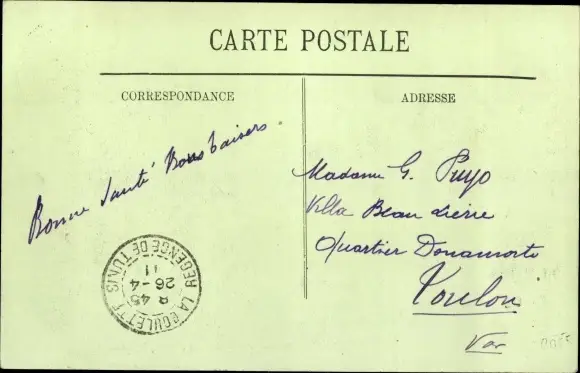 CARTE POSTALE
CORRESPONDANCE
ADRESSE
Bonne Santé Bons baisers
Madame G. Puyo
Villa Beau
Quartier
Toulon
Var
LA GOULETTE
8 45
26 - 4
11
REGENCE DE TUNIS